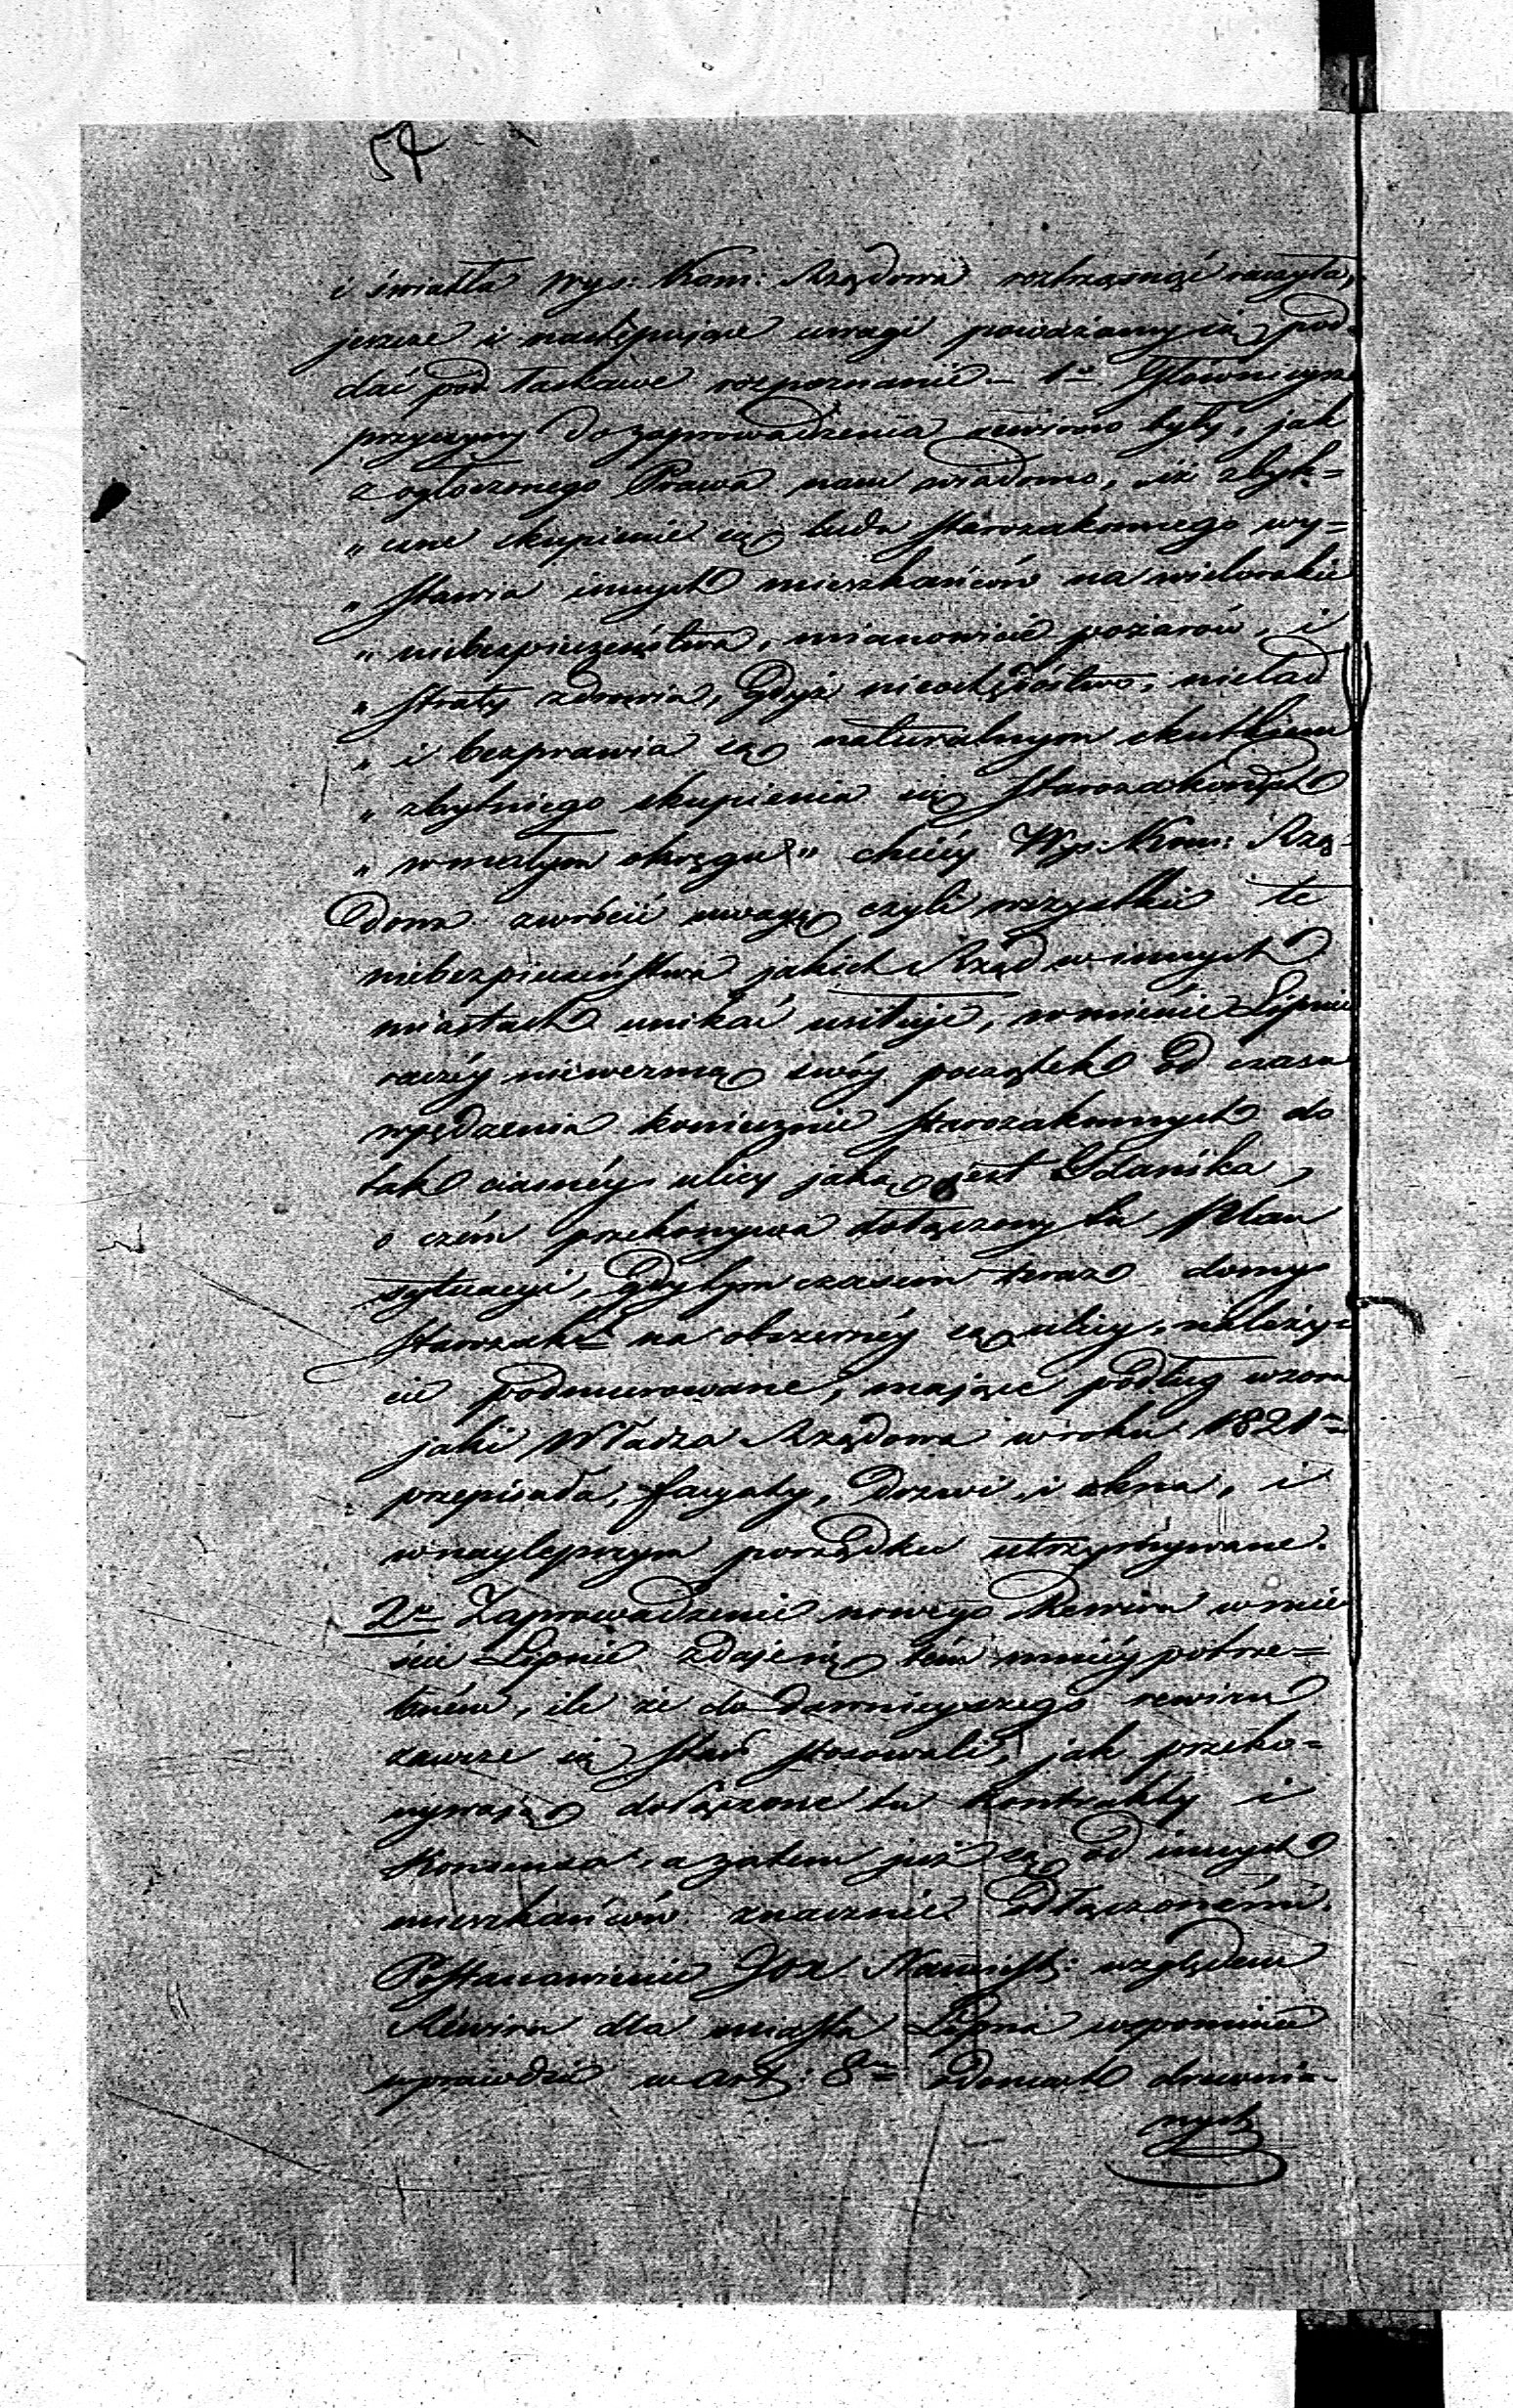 54
i światła Wys: Kom: Rządowa roztrząsnąć raczyła,
jeszcze i następujące uwagi poważamy się pod-
dać pod łaskawe rozpoznanie – 1o Główne
przyczyny do zaprowadzenia rewiru były, jak
z ogłoszonego Prawa nam wiadomo, iż zbyt=
„ czne skupienie się ludu starozakonnego wy=
„ stawia innych mieszkańców na wielorakie
„ niebezpieczeństwa, mianowicie pożarów, i
„ straty zdrowia, Gdyż nieochęstwo, nieład
„ i bezprawia są naturalnym skutkiem
„ zbytniego skupienia się starozakonnych
„ w małym okręgu" chciéy Wys: Kom: Rzą-
dowa zwrócić uwagę czyli wszystkie te
niebezpieczeństwa jakich Rząd w innych
miastach unikać usiłuje, w mieście Lipnie
raczéy niewezmą swóy początek od czasu
wpędzenia koniecznie starozakonnych do
tak ciasnéy ulicy jaką jest Gdańska,
o czém przekonywa dołączony tu Plan
sytuacyi, gdy tymczasem teraz domy
Starozak: na obszernéy są ulicy, należy=
cie podmurowane, mające podług wzoru
jaki Władza Rządowa w roku 1821m
przepisała, facyaty, Drzwi, i okna, i
w naylepszym porządku utrzymywane.
2o Zaprowadzenie nowego Rewiru w mie
ście Lipnie zdaje się tém mniéy potrze=
bném, ile że do dawnieyszego rewiru
zawsze się Star: stosowali, jak przeko=
nywają dołączone tu kontrakty i
Konsensa, a zatem już są od innych
mieszkańców znacznie odłączonémi.
Postanowienie JOX Namiest: względem
Rewiru dla miasta Lipna wspomina
wprawdzie w Art: 8m o domach drewnia-
nych